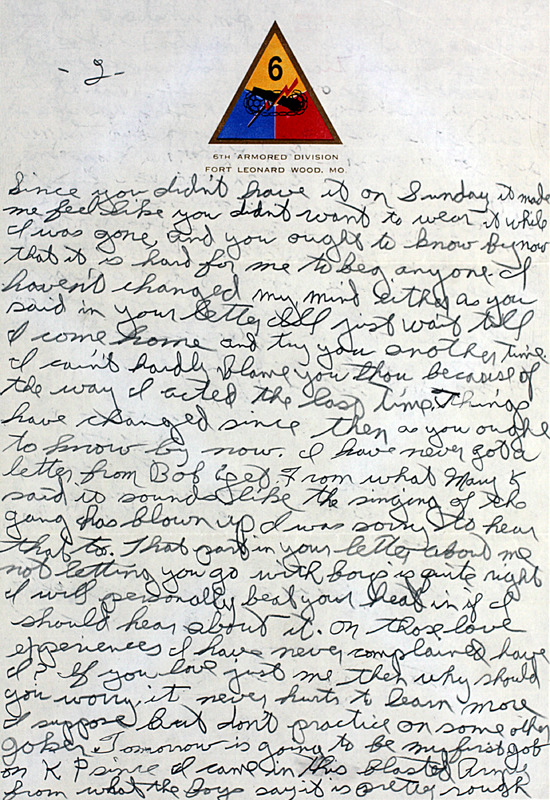 - 2 -
6
6TH ARMORED DIVISION
FORT LEONARD WOOD, MO.
Since you didn't have it on Sunday it made
me feel like you didnt want to wear it while
I was gone, and you ought to know by now
that it is hard for me to beg anyone. I
haven't changed my mind either as you
said in your letter I'll just wait till
I come home and try you another time.
I cain't hardly blame you thou because of
the way I acted the last time. Things
have changed since then as you ought
to know by now. I have never got a
letter from Bob yet. From what Mary K
said it sounds like the singing of the
gang has blown up I was sorry to hear
that to. That part in your letter about me
not letting you go with boys is quite right
I will personally beat your head in if I
should hear about it. On those love
experiences I have never complained have
I? If you love just me then why should
you worry, it never hurts to learn more
I suppose but dont practice on some other
joker. Tomorrow is going to be my first job
on K P since I came in this blasted Army
from what the boys say it is pretty rough